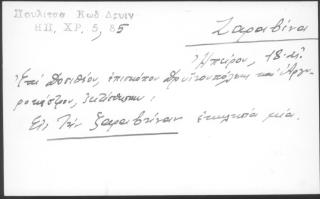 Πουλίτσα Κωδ Δρυιν
ΗΠ, ΧΡ, 5, 85
Ζαραβίνα
Ἠπείρου, 18
Ἐπὶ Δοσιθέου, ἐπισκόπου Δρυϊνουπόλεως καὶ Ἀργυ-
ροκάστρου,
Εἰς τὴν ξαραβίναν ἐκκλησία μία.